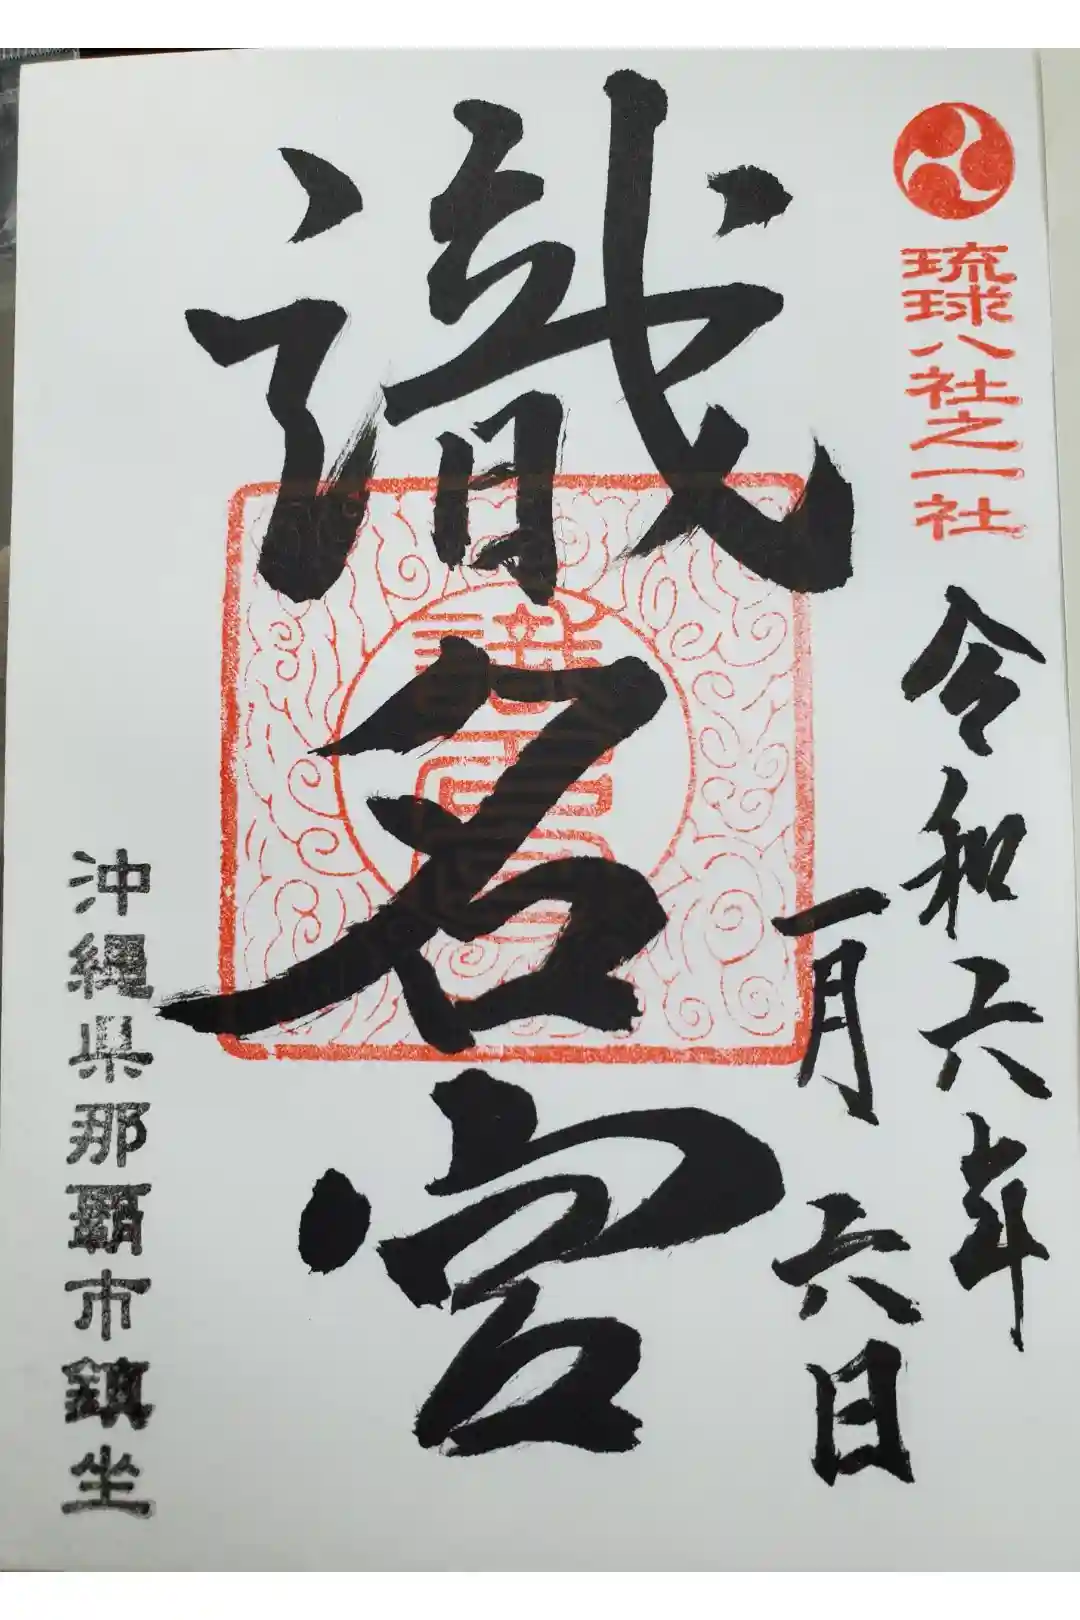 琉球八社之一社
令和六年
一月六日
識名宮
沖縄県那覇市鎮坐